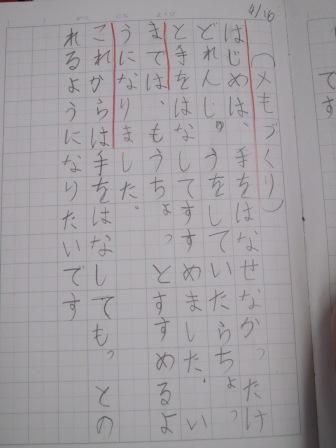 4/16
です
(メモづくり)
はじめは、手をはなせなかったけ
どれんじゅうをしていたらちょっ
と手をはなしてすすめました。い
までは、もうちょっとすすめるよ
うになりました。
これからは手をはなしてもっとの
れるようになりたいです